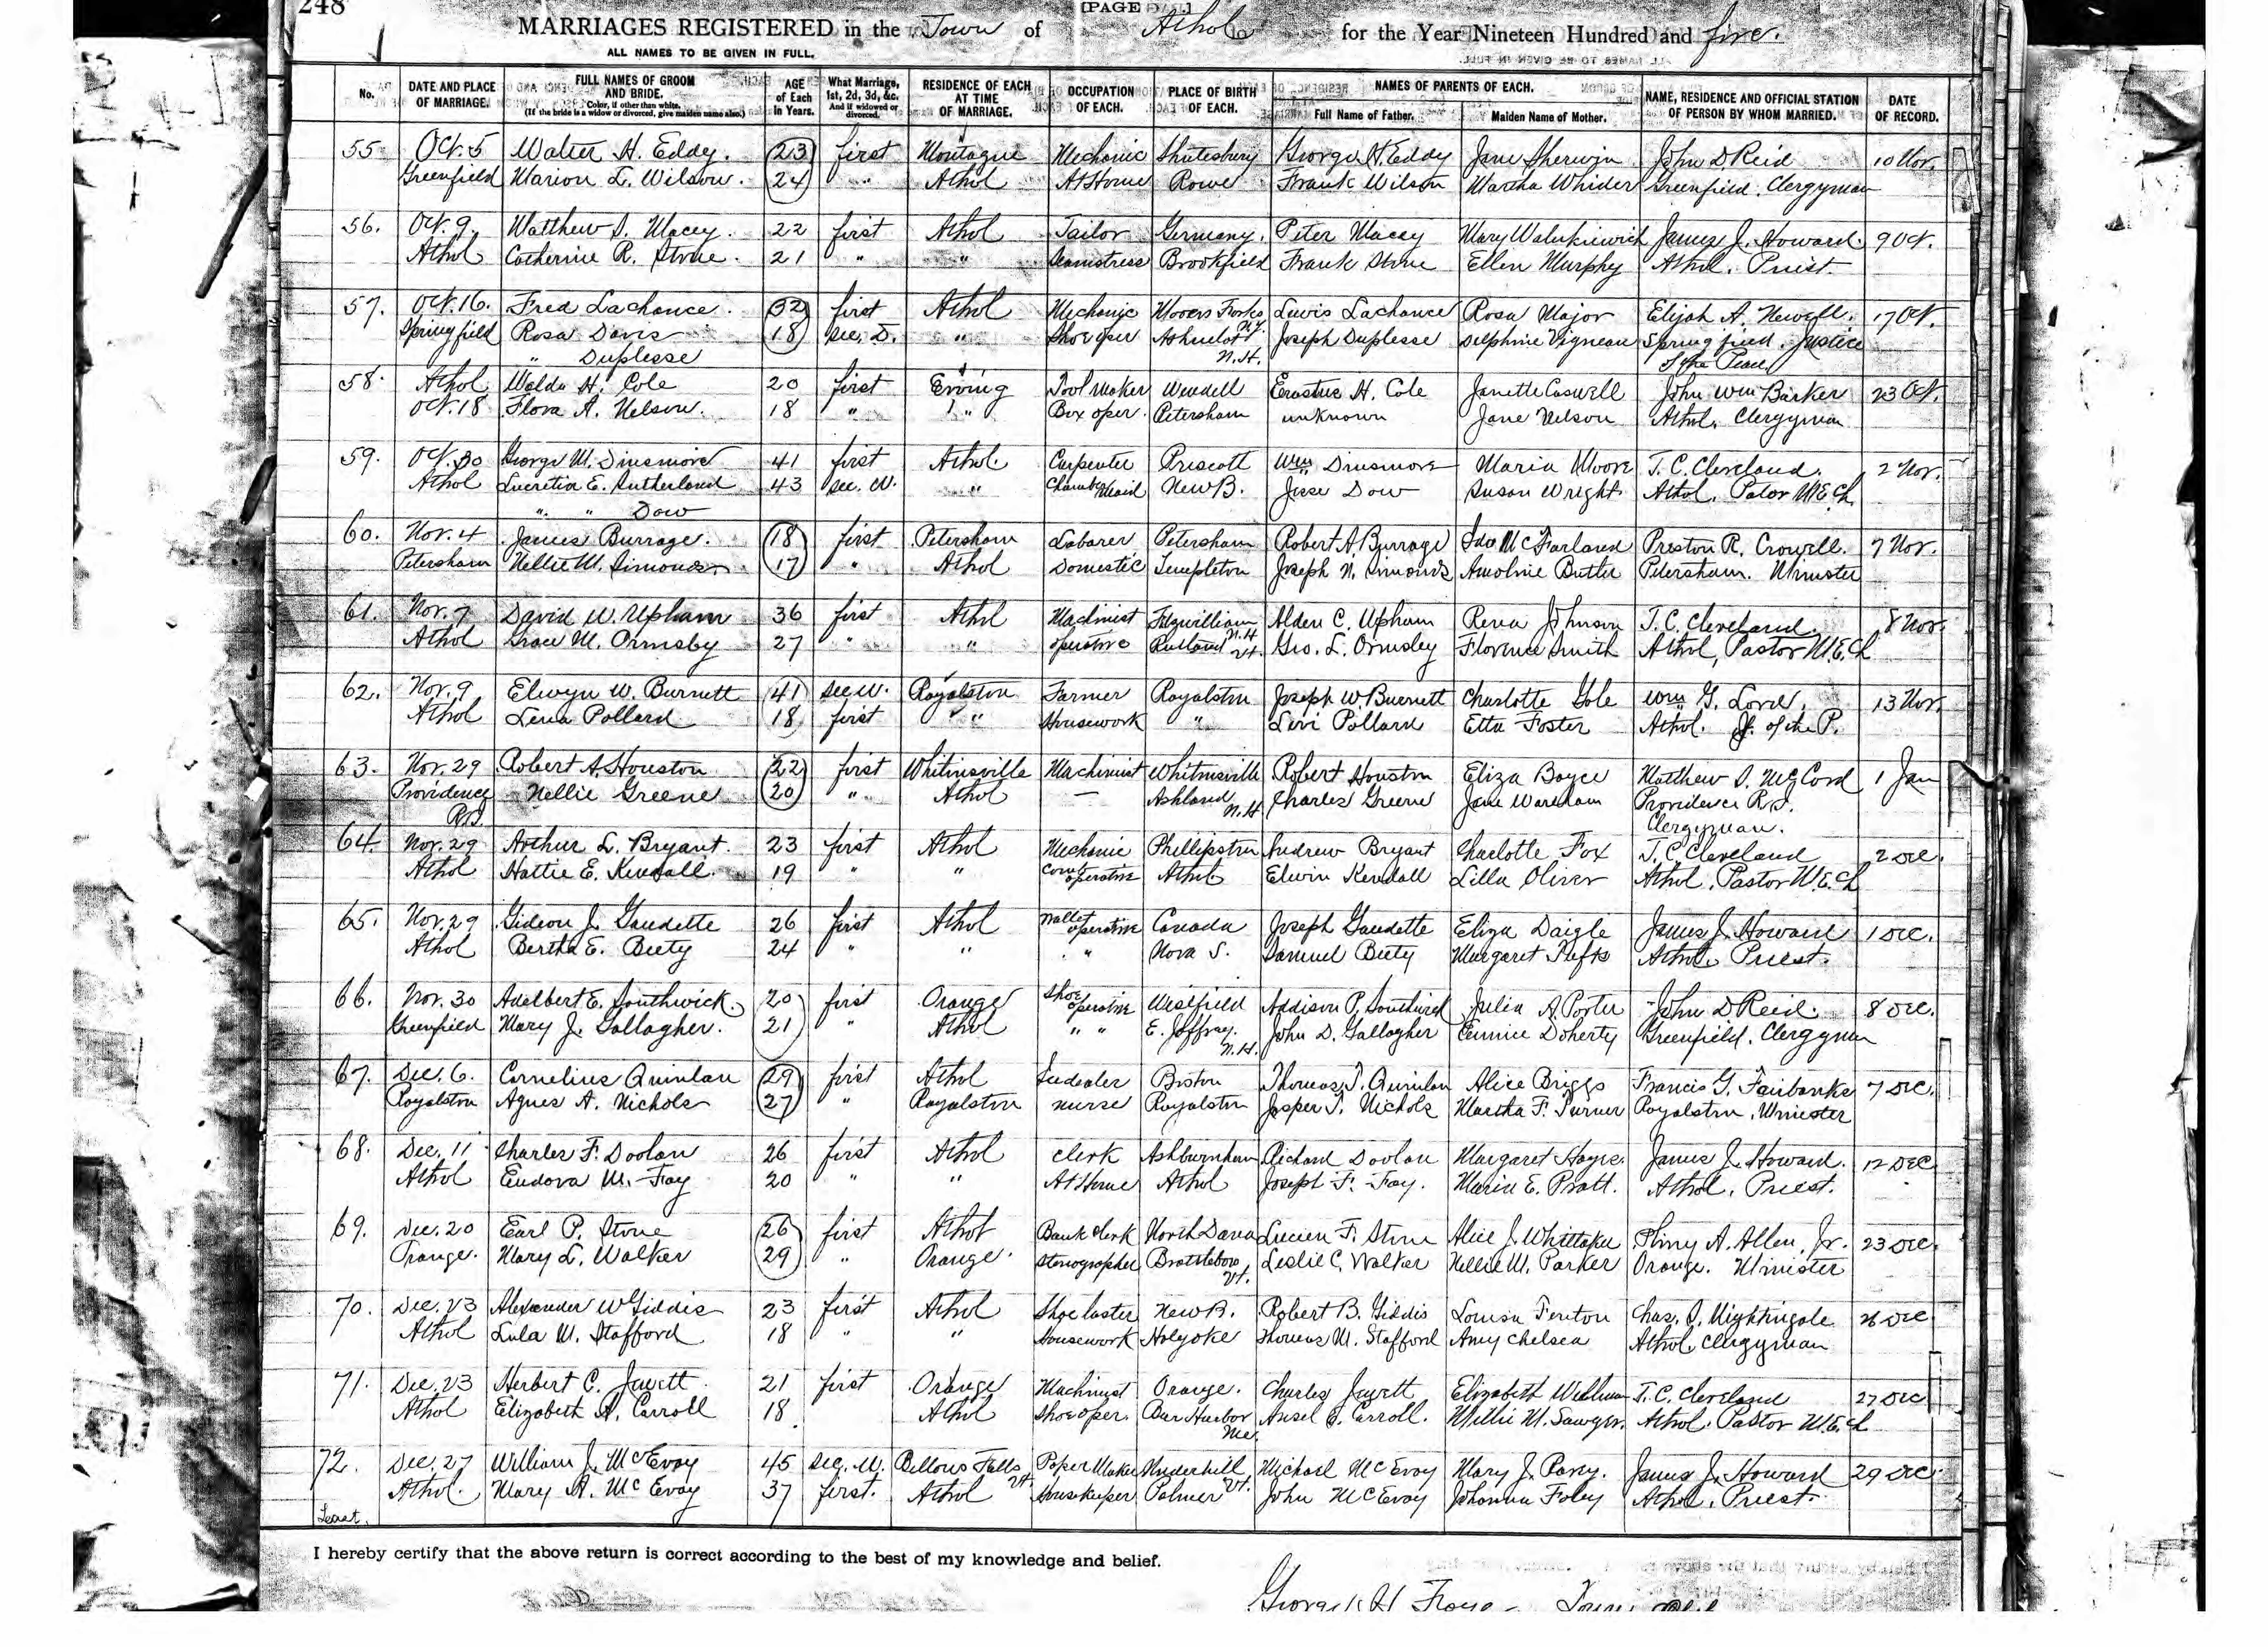 248
[PAGE
MARRIAGES REGISTERED in the Town of Athol for the Year Nineteen Hundred and five.
ALL NAMES TO BE GIVEN IN FULL.
No. DATE AND PLACE OF MARRIAGE. FULL NAMES OF GROOM AND BRIDE. Color, if other than white. (If the bride is a widow or divorced, give maiden name also.) AGE of Each in Years. What Marriage, 1st, 2d, 3d, &c. And if widowed or divorced. RESIDENCE OF EACH AT TIME OF MARRIAGE. OCCUPATION OF EACH. PLACE OF BIRTH OF EACH. NAMES OF PARENTS OF EACH. Full Name of Father. Maiden Name of Mother. NAME, RESIDENCE AND OFFICIAL STATION OF PERSON BY WHOM MARRIED. DATE OF RECORD.
55 Oct. 5 Walter H. Eddy. 23 first Montague Mechanic Shutesbury George H. Eddy Jane Sherwin John D Reid 10 Nov.
Greenfield Marion L. Wilson. 24 " Athol At Home Rowe Frank Wilson Martha Greenfield. Clergyman
56. Oct. 9. Matthew S. Macey. 22 first Athol Tailor Germany. Peter Macey Mary James J. Howard. 9 Oct.
Athol Catherine R. Stone. 21 " " Seamstress Brookfield Frank Stone Ellen Murphy Athol. Priest.
57. Oct. 16. Fred Lachance. 32 first Athol Mechanic Mooers Forks N.Y. Lewis Lachance Rosa Major Elijah A. Newell. 17 Oct.
Springfield Rosa Davis 18 sec. D. " Shoe oper Ashuelot N.H. Joseph Duplesse Delphine Vigneau Springfield. Justice
" Duplesse of the Peace
58. Athol Waldo H. Cole 20 first Erving Tool Maker Wendell Erastus H. Cole Janette Caswell John Wm Barker 23 Oct.
Oct. 18 Flora A. Nelson. 18 " " Box oper. Petersham unknown Jane Nelson Athol. Clergyman
59. Oct. 30 George M. Dinsmore 41 first Athol. Carpenter Prescott Wm Dinsmore Maria Moore J. C. Cleveland. 2 Nov.
Athol Lucretia E. Sutherland 43 sec. W. " Chamber Maid New B. Jesse Dow Susan Wright Athol, Pastor M.E. Ch
" " Dow
60. Nov. 4 James Burrage. 18 first Petersham Laborer Petersham Robert A. Burrage Ida McFarland Preston R. Crowell. 7 Nov.
Petersham Nellie M. Simonds. 17 " Athol Domestic Templeton Joseph N. Simonds Butler Petersham. Minister
61. Nov. 7 David W. Upham 36 first Athol Machinist Fitzwilliam N.H. Alden C. Upham Rena Johnson J. C. Cleveland. 8 Nov.
Athol Grace M. Ormsby 27 " " operative Rutland Vt. Geo. L. Ormsby Florence Smith Athol, Pastor M.E. Ch
62. Nov. 9 Elwyn W. Burnett 41 sec W. Royalston Farmer Royalston Joseph W. Burnett Charlotte Gole Wm G. Lord. 13 Nov.
Athol Lena Pollard 18 first " " Housework " Levi Pollard Etta Foster Athol. J. of the P.
63. Nov. 29 Robert A. Houston 22 first Whitinsville Machinist Whitinsville Robert Houston Eliza Boyce Matthew S. McCord 1 Jan
Providence Nellie Greene 20 " Athol — Ashland N.H. Charles Greene Jane Wareham Providence R.I.
R.I. Clergyman.
64. Nov. 29 Arthur L. Bryant. 23 first Athol Mechanic Phillipston Andrew Bryant Charlotte Fox J. C. Cleveland 2 Dec.
Athol Hattie E. Kendall. 19 " " operative Athol Elwin Kendall Lilla Oliver Athol, Pastor M.E. Ch
65. Nov. 29 Gideon J. Gaudette 26 first Athol Wallet operative Canada Joseph Gaudette Eliza Daigle James J. Howard 1 Dec.
Athol Bertha E. Beety 24 " " " Nova S. Samuel Beety Margaret Athol. Priest.
66. Nov. 30 Adelbert E. Southwick. 20 first Orange Shoe operative Westfield Addison P. Southwick Julia A. Porter John D Reid. 8 Dec.
Greenfield Mary J. Gallagher. 21 " Athol " " E. Jaffrey. N.H. John D. Gallagher Eunice Doherty Greenfield. Clergyman
67. Dec. 6. Cornelius Quinlan 29 first Athol Icedealer Boston Thomas J. Quinlan Alice Briggs Francis G. Fairbanks 7 Dec.
Royalston Agnes A. Nichols 27 " Royalston nurse Royalston Jasper T. Nichols Martha F. Turner Royalston, Minister
68. Dec. 11 Charles F. Doolan 26 first Athol Clerk Ashburnham Richard Doolan Margaret Hayes. James J. Howard. 12 Dec
Athol Eudora M. Fay 20 " " At Home Athol Joseph F. Fay. Maria E. Pratt. Athol, Priest.
69. Dec. 20 Earl P. Stone 26 first Athol Bank clerk North Dana Lucien F. Stone Alice J. Whittaker Pliny A. Allen, Jr. 23 Dec.
Orange. Mary L. Walker 29 " Orange. Stenographer Brattleboro Vt. Leslie C. Walker Nellie M. Parker Orange. Minister
70. Dec. 23 Alexander W Giddis 23 first Athol Shoe laster New B. Robert B. Giddis Louisa Fenton Chas. S. Nightingale 26 Dec
Athol Lula M. Stafford 18 " " Housework Holyoke Thomas M. Stafford Amy Chelsea Athol. Clergyman
71. Dec. 23 Herbert C. Jewett 21 first Orange Machinist Orange. Charles Jewett Elizabeth J. C. Cleveland 27 Dec
Athol Elizabeth A. Carroll 18. Athol Shoe oper. Bar Harbor Me. Ansel J. Carroll. Millie M. Sawyer. Athol. Pastor M.E. Ch
72. Dec. 27 William J. McEvoy 45 sec. W. Bellows Falls Vt. Paper Maker Underhill Vt. Michael McEvoy Mary J. James J. Howard 29 Dec.
Athol. Mary A. McEvoy 37 first. Athol Housekeeper Palmer John McEvoy Johanna Foley Athol, Priest.
I hereby certify that the above return is correct according to the best of my knowledge and belief.